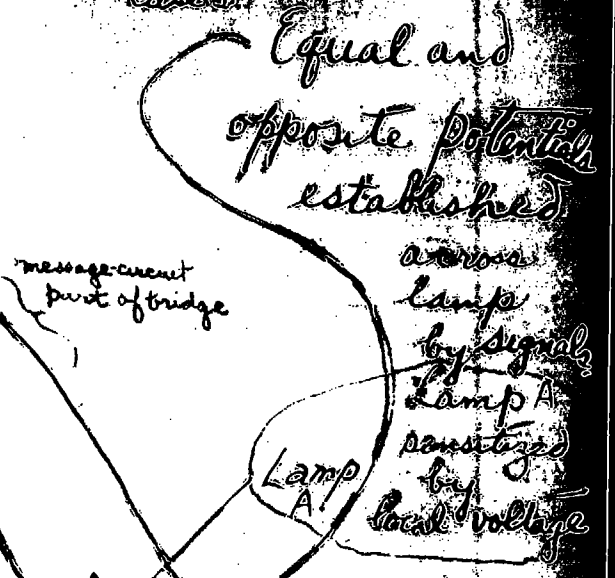 Equal and
opposite potentials
established
across
lamp
by signals
Lamp A
sensitized
by
local voltage
message circuit
part of bridge
Lamp
A